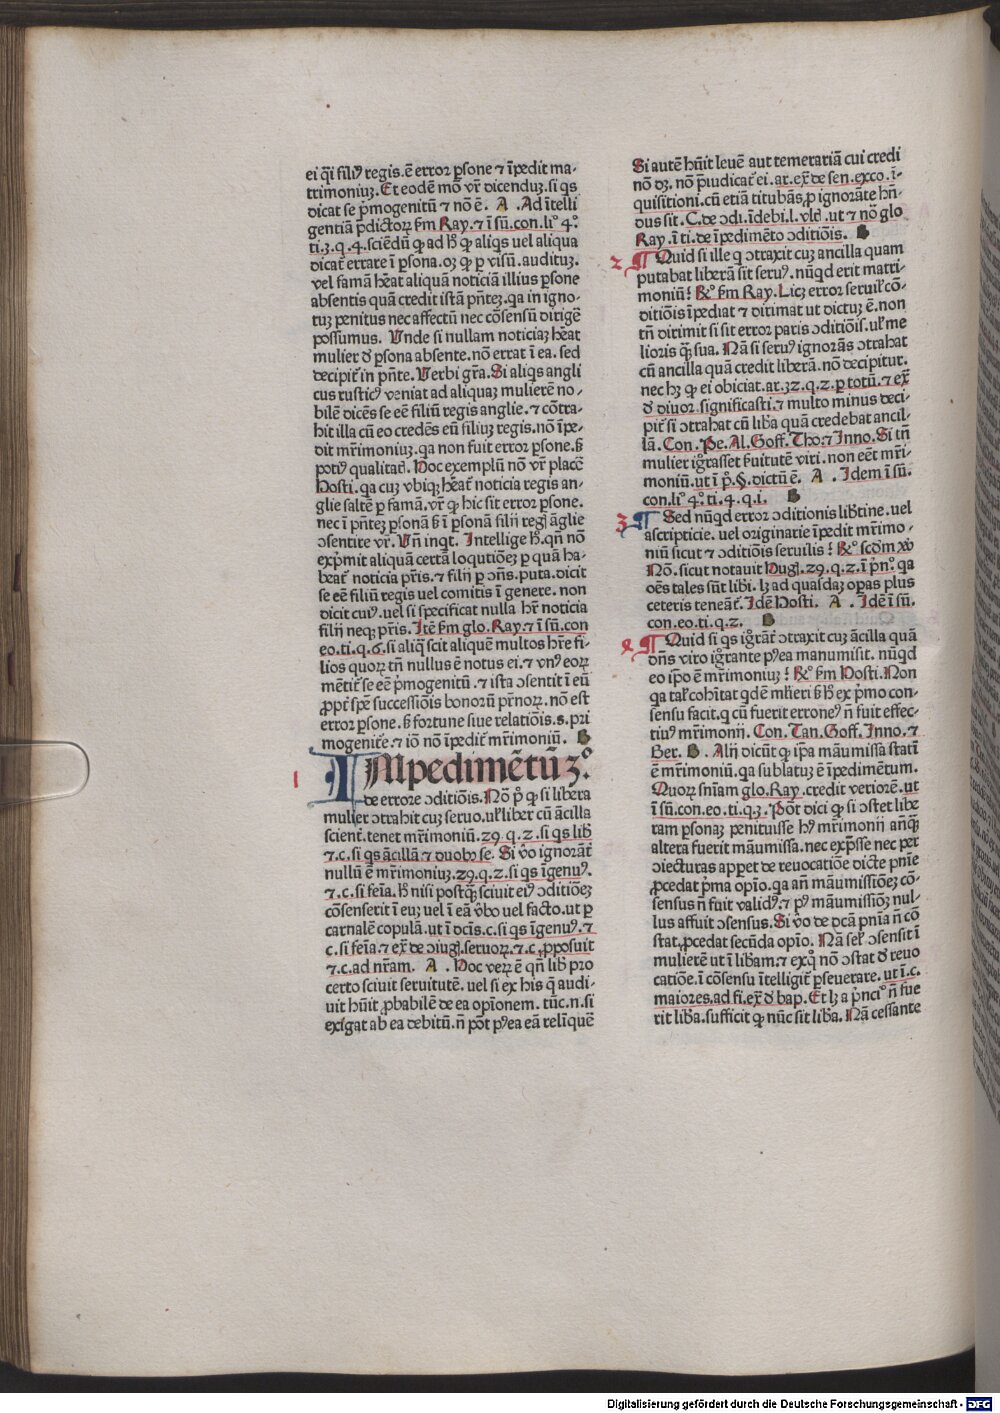 ei q̄i filiꝰ regis.ē error ꝑsone ⁊ īpedit ma⸗
trimoniuꝫ. Et eodē mō vr̄ dicenduꝫ.si qs
dicat se pͥmogenitū ⁊ nō ē. A . Ad ītelli
gentiā p̄dictoꝝ ẜm Ray.⁊ ī sū.con.liº 4º.
ti.3.q.4.sciēdū ꝙ ad hͦ ꝙ aliqs uel aliqua
dicat᷑ errare ī ꝑsona.oꝫ ꝙ ꝑ visū.audituꝫ.
vel famā hēat aliquā noticiā illius ꝑsone
absentis quā credit istā pn̄teꝫ.qa in igno⸗
tuꝫ penitus nec affectū nec cōsensū dirigē
possumus. Unde si nullam noticiaꝫ hēat
mulier ꝺ̄ ꝑsona absente.nō errat ī ea. sed
decipit᷑ in pn̄te. Verbi gr̄a.Si aliqs angli
cus rusticꝰ veniat ad aliquaꝫ mulierē no⸗
bilē dicēs se eē filiū regis anglie.⁊ cōtra⸗
hit illa cū eo credēs eū filiuꝫ regis.nō īpe⸗
dit mr̄imoniuꝫ.qa non fuit error ꝑsone.ẜ
potiꝰ qualitat᷑. Hoc exemplū nō vr̄ placē
Hosti.qa cuꝫ vbiqꝫ hēat᷑ noticia regis an⸗
glie saltē ꝑ famā.vr̄ ꝙ hic sit error ꝑsone.
nec ī pn̄teꝫ ꝑsonā ẜ ī ꝑsonā filij regꝭ āglie
ↄsentite vr̄. Un̄ inqt. Intellige hͦ.qn̄ nō
expͥmit aliquā certā loqutiōeꝫ ꝑ quā ha⸗
beat᷑ noticia pr̄is.⁊ filij ꝑ ↄn̄s.puta.dicit
se eē filiū regis uel comitis ī genere. non
dicit cuiꝰ.uel si specificat nulla hr̄ noticia
filij neqꝫ pr̄is. Itē ẜm glo. Ray.⁊ ī sū.con
eo.ti.q.6.si aliqͥ scit aliquē multos hr̄e fi⸗
lios quoꝝ tn̄ nullus ē notus ei.⁊ vnꝰ eoꝝ
mētit᷑ se eē pͥmogenitū.⁊ ista ↄsentit ī eū
ꝓpt᷑ spē successiōis bonorū pr̄noꝝ.nō est
error ꝑsone.ẜ fortune siue relatiōis.s.pri
mogenit᷑e.⁊ iō nō īpedit᷑ mr̄imoniū. B
1 IMpedimētū 2º.
de errore ↄditiōis.Nō pͦ ꝙ si libera
mulier ↄtrahit cuꝫ seruo.ul᷑ liber cū ācilla
scient᷑.tenet mr̄imoniū.29.q.2.si qs lib᷑
⁊.c.si qs ācillā ⁊ duobꝫ se. Si v̊o ignorāt᷑
nullū ē mr̄imoniuꝫ.29.q.2.si qs īgenuꝰ.
⁊.c.si feīa.hͦ nisi postqꝫ sciuit eiꝰ ↄditiōeꝫ
cōsenserit ī euꝫ uel ī eā v̊bo uel facto.ut ꝑ
carnalē copulā.ut ī dc̄is.c.si qs īgenuꝰ.⁊
c.si feīa.⁊ ex̄ de ↄiugꝭ.seruoꝝ.⁊.c.ꝓposuit
⁊.c.ad nr̄am. A . Hoc veꝝ ē qn̄ lib᷑ pro
certo sciuit seruitutē. uel si ex his q̄ audi⸗
uit hūit ꝓbabilē de ea opīonem. tūc.n.si
exigat ab ea debitū.n̄ pōt pꝰea eā relīquē
Si autē hūit leuē aut temerariā cui credi
nō dꝫ. nō p̄iudicat᷑ ei.ar.ex̄ de sen.exco.ī⸗
quisitioni.cū etiā titubās.ꝓ ignorāte hn̄⸗
dus sit.C.de ↄdi.īdebi.l.vlꝉ.ut ⁊ nō glo
Ray.ī ti.de īpedimēto ↄditiōis. B
2 ¶ Quid si ille q ↄtraxit cuꝫ ancilla quam
putabat liberā sit seruꝰ. nūqd erit matri⸗
moniū? ꝶº ẜm Ray.Licꝫ error seruil᷑ cō⸗
ditiōis īpediat ⁊ dirimat ut dictuꝫ ē.non
tn̄ dirimit si sit error paris ↄditiōis.ul᷑ me
lioris qꝫ sua. Nā si seruꝰ ignorās ↄtrahat
cū ancilla quā credit liberā.nō decipitur.
nec hꝫ ꝙ ei obiciat.ar.32.q.2.ꝑ totū.⁊ ex̄
ꝺ̄ diuor.significasti.⁊ multo minus deci⸗
pit᷑ si ↄtrahat cū lib᷑a quā credebat ancil⸗
lā. Con. Pe. Al. Goff. Tho.⁊ Inno. Si tn̄
mulier igͦrasset ẜuitutē viri.non eēt mr̄i⸗
moniū.ut ī pͦ.§.dictū ē. A . Idem ī sū.
con.liº 4º.ti.4.q.i. B
3 ¶ Sed nūqd error ↄditionis lib᷑tine.uel
ascripticie. uel originarie īpedit mr̄imo⸗
niū sicut ⁊ ↄditiōis seruilis? ꝶº scd̄m
Nō.sicut notauit Hugꝭ.29.q.2.ī pͥnº.qa
oēs tales sūt libi᷑.lꝫ ad quasdaꝫ oꝑas plus
ceteris teneāt᷑. Idē Hosti. A . Idē ī sū.
con.eo.ti.q.2. B
4 ¶ Quid si qs igͦrāt᷑ ↄtraxit cuꝫ ācilla quā
dn̄s viro igͦrante pꝰea manumisit. nūqd
eo ip̄o ē mr̄imoniuꝫ? ꝶº ẜm Hosti.Non
qa tal᷑ cohītat qdē ml᷑ieri ẜ hͦ ex pͥmo con⸗
sensu facit.q cū fuerit erroneꝰ n̄ fuit effec⸗
tiuꝰ mr̄imonij. Con. Tan. Goff. Inno.⁊
Ber. B . Alij dicūt ꝙ ip̄a māumissa statī
ē mr̄imoniū.qa sublatuꝫ ē īpedimētum.
Quoꝝ sn̄iam glo.Ray.credit veriorē.ut
ī sū.con.eo.ti.q.3. Pōt dici ꝙ si ↄstet libe
ram ꝑsonaꝫ penituisse hꝰ mr̄imonij anꝙꝫ
altera fuerit māumissa.nec exp̄sse nec per
ↄiecturas appet de reuocatiōe dicte pn̄ie
ꝓcedat pͥma opīo.qa an̄ māumissiōeꝫ cō⸗
sensus n̄ fuit validꝰ.⁊ pꝰ māumissiōeꝫ nul⸗
lus affuit ↄsensus. Si v̊o de dc̄a pn̄ia n̄ cō
stat.ꝓcedat secūda opīo. Nā sel᷑ ↄsensit ī
mulierē ut ī lib᷑am.⁊ exqͦ nō ↄstat ꝺ̄ reuo
catiōe.ī cōsensu ītelligit᷑ ꝑseuerare.ut ī.c.
maiores.ad fi.ex̄ ꝺ̄ bap. Et lꝫ a pͥnciº n̄ fue
rit lib᷑a.sufficit ꝙ nūc sit lib᷑a. Nā cessante
Digitalisierung gefördert durch die Deutsche Forschungsgemeinschaft - DFG